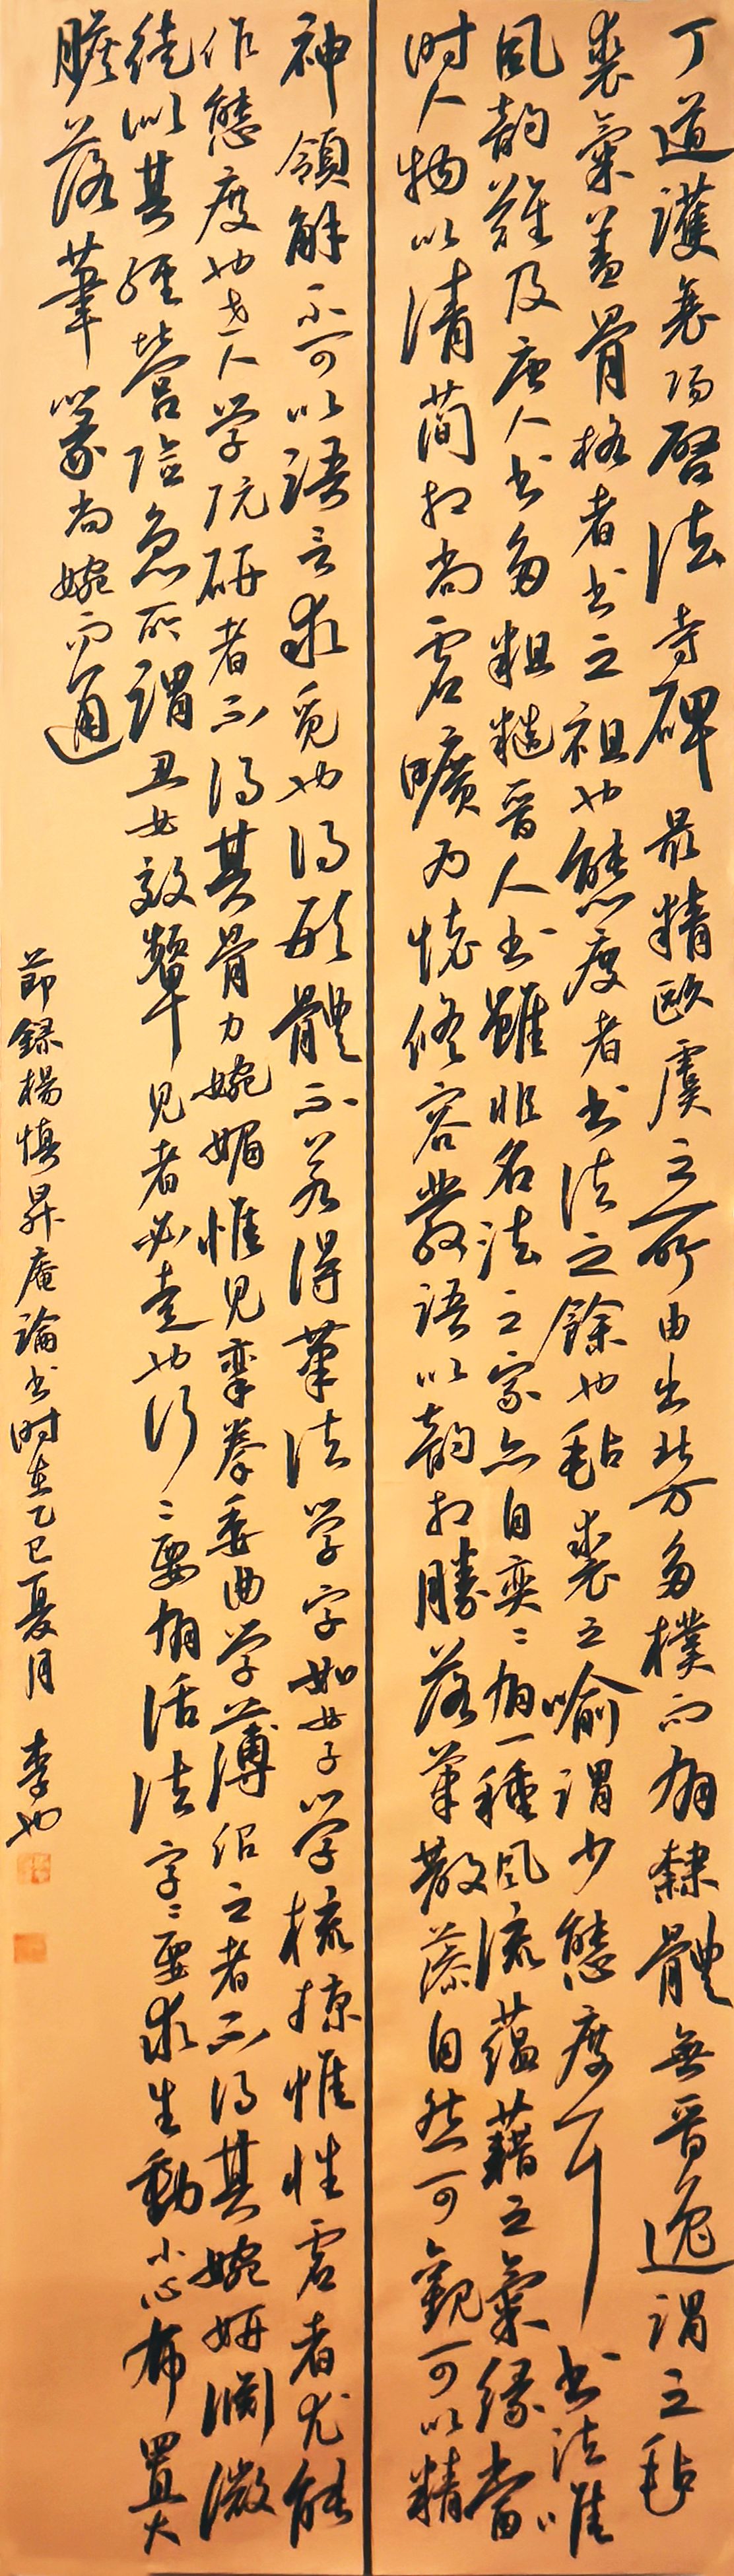 丁道護襄陽啓法寺碑最精歐虞之所由出北方多樸而有隸體無晉逸謂之毡
裘氣蓋骨格者书之祖也態度者书法之餘也毡裘之喻謂少態度耳书法唯
风韵難及唐人书多粗糙晉人书雖非名法之家亦自奕〻有一種风流蘊藉之氣緣當
时人物以清簡相尚虛曠为怀修容發語以韵相勝落筆散藻自然可觀可以精
神領解不可以語言求覓也得形體不若得筆法学字如女子学梳掠惟性虛者尤能
作態度也古人学阮研者不得其骨力婉媚惟見攣拳委曲学薄绍之者不得其婉妍淵微
徒似其經營險急所謂丑女效顰見者必走也行〻要有活法字〻要求生動小心布置大
膽落筆篆尚婉而通
節録楊慎昇庵論书时在乙巳夏月 李也